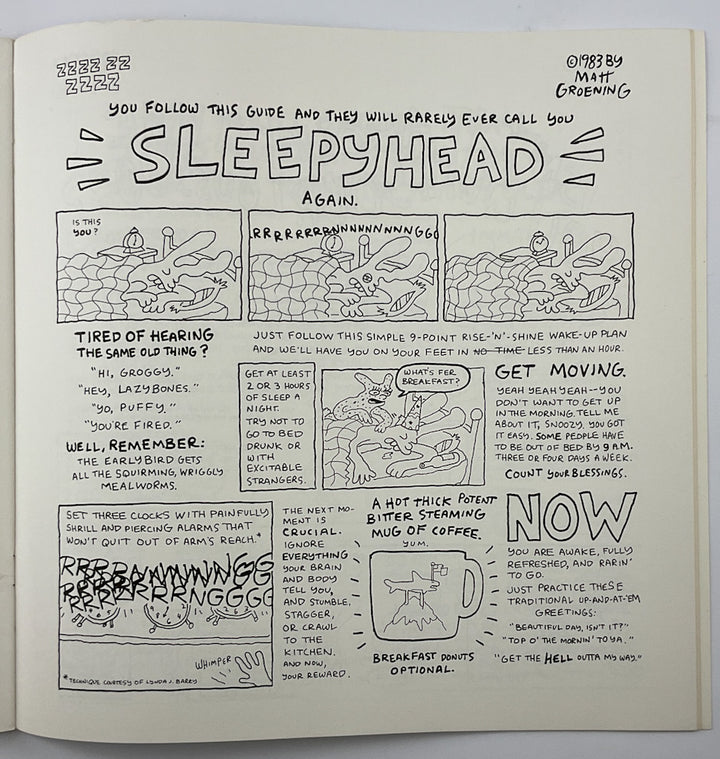 ZZZZ ZZ
ZZZZ
©1983 BY
MATT
GROENING
YOU FOLLOW THIS GUIDE AND THEY WILL RARELY EVER CALL YOU
SLEEPYHEAD
AGAIN.
IS THIS
YOU?
RRRRRRRRNNNNNNNNGGG
TIRED OF HEARING
THE SAME OLD THING?
"HI, GROGGY."
"HEY, LAZYBONES."
"YO, PUFFY."
"YOU'RE FIRED."
WELL, REMEMBER:
THE EARLY BIRD GETS
ALL THE SQUIRMING, WRIGGLY
MEALWORMS.
JUST FOLLOW THIS SIMPLE 9-POINT RISE-'N'-SHINE WAKE-UP PLAN
AND WE'LL HAVE YOU ON YOUR FEET IN NO TIME LESS THAN AN HOUR.
GET AT LEAST
2 OR 3 HOURS
OF SLEEP A
NIGHT.
TRY NOT TO
GO TO BED
DRUNK OR
WITH
EXCITABLE
STRANGERS.
WHAT'S FER
BREAKFAST?
GET MOVING.
YEAH YEAH YEAH--YOU
DON'T WANT TO GET UP
IN THE MORNING. TELL ME
ABOUT IT, SNOOZY. YOU GOT
IT EASY. SOME PEOPLE HAVE
TO BE OUT OF BED BY 9 A.M.
THREE OR FOUR DAYS A WEEK.
COUNT YOUR BLESSINGS.
SET THREE CLOCKS WITH PAINFULLY
SHRILL AND PIERCING ALARMS THAT
WON'T QUIT OUT OF ARM'S REACH.*
WHIMPER
*TECHNIQUE COURTESY OF LYNDA J. BARRY
THE NEXT MO-
MENT IS
CRUCIAL.
IGNORE
EVERYTHING
YOUR BRAIN
AND BODY
TELL YOU,
AND STUMBLE,
STAGGER,
OR CRAWL
TO THE
KITCHEN.
AND NOW,
YOUR REWARD.
A HOT THICK POTENT
BITTER STEAMING
MUG OF COFFEE.
YUM.
BREAKFAST DONUTS
OPTIONAL.
NOW
YOU ARE AWAKE, FULLY
REFRESHED, AND RARIN'
TO GO.
JUST PRACTICE THESE
TRADITIONAL UP-AND-AT-'EM
GREETINGS:
"BEAUTIFUL DAY, ISN'T IT?"
"TOP O' THE MORNIN' TO YA."
"GET THE HELL OUTTA MY WAY."